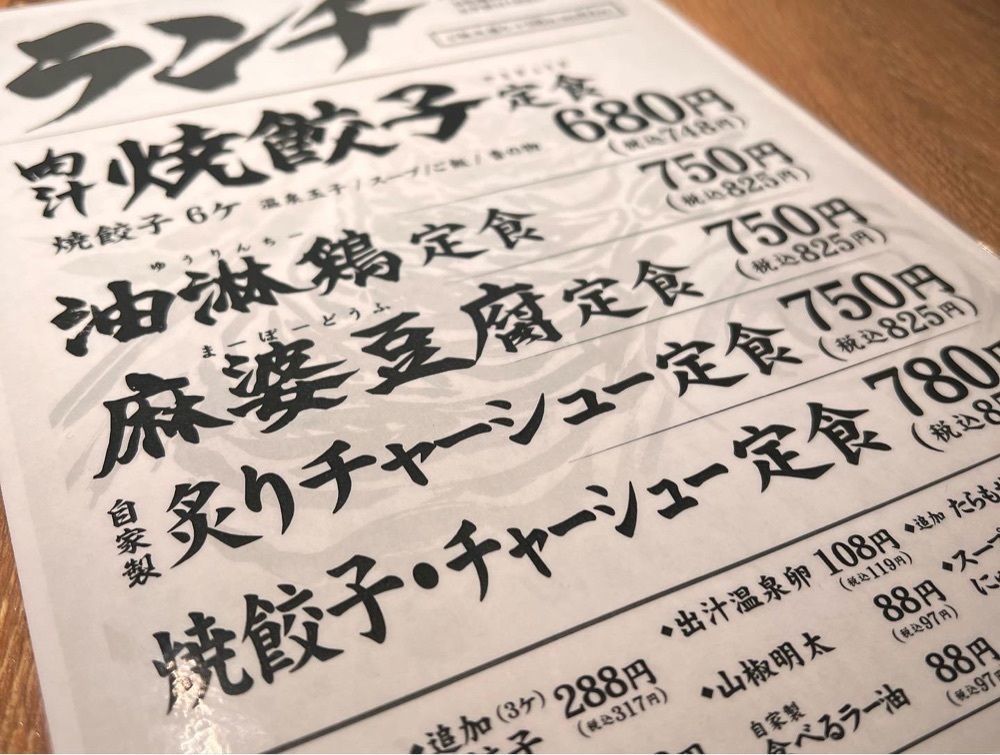 ランチ
肉汁 焼餃子 定食 680円
(税込748円)
焼餃子 6ケ 温泉玉子/スープ/ご飯/香の物
ゆうりんちー
油淋鶏 定食 750円
(税込825円)
まーぼーどうふ
麻婆豆腐 定食 750円
(税込825円)
自家製 炙りチャーシュー定食 750円
(税込825円)
焼餃子・チャーシュー定食 780円
(税込8
追加(3ケ) 288円
(税込317円)
餃子
◆出汁温泉卵 108円
(税込119円)
◆山椒明太 88円
(税込97円)
自家製
食べるラー油 88円
(税込97
◆追加 たらも
◆スープ
に